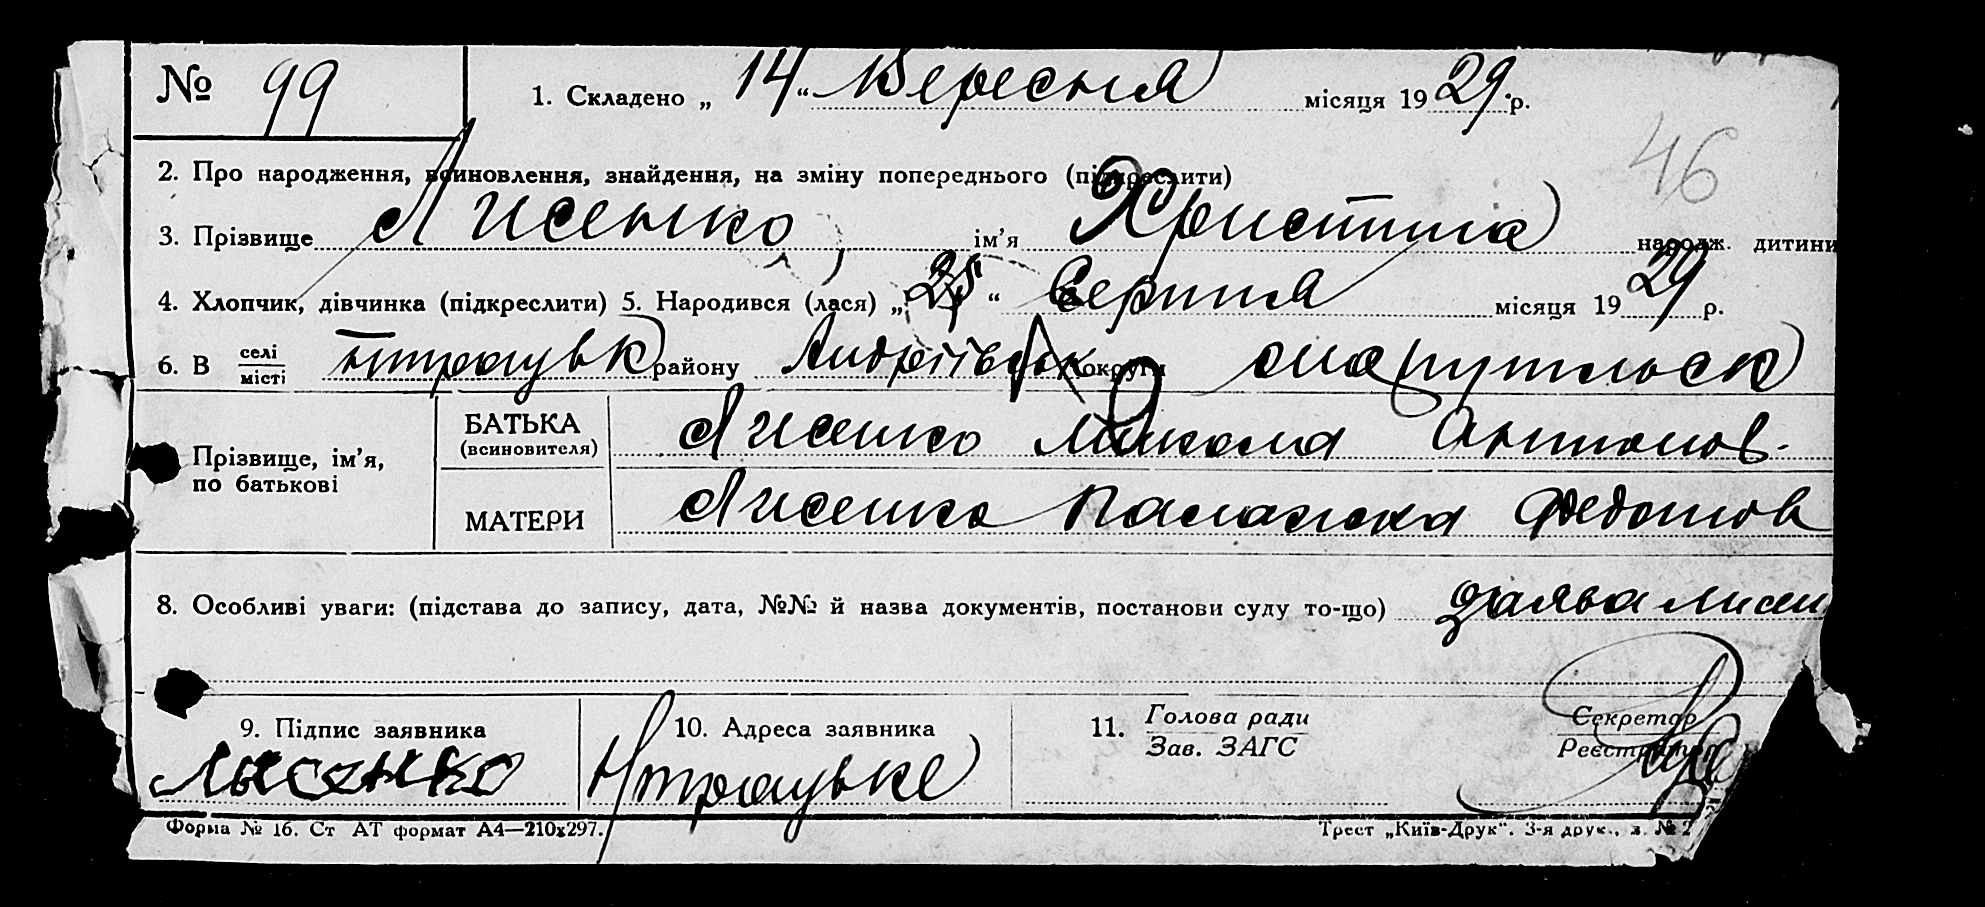 № 99
1. Складено „14“ Вересня місяця 1929 р.
46
2. Про народження, всиновлення, знайдення, на зміну попереднього (підкреслити)
3. Прізвище Лисенко ім’я Христина народж. дитини
4. Хлопчик, дівчинка (підкреслити) 5. Народився (лася) „25“ Серпня місяця 1929 р.
6. В селі місті району Андріївськ округи
Прізвище, ім’я, по батькові
БАТЬКА (всиновителя) Лисенко Микола Антонов.
МАТЕРИ Лисенко Палажка Федотов
8. Особливі уваги: (підстава до запису, дата, №№ й назва документів, постанови суду то-що) Заява Лисен
9. Підпис заявника 10. Адреса заявника 11. Голова ради Зав. ЗАГС Секретар Реєстратор
Лысенко
Форма № 16. Ст АТ формат А4—210х297. Трест „Київ-Друк“. 3-я друк., з. № 2